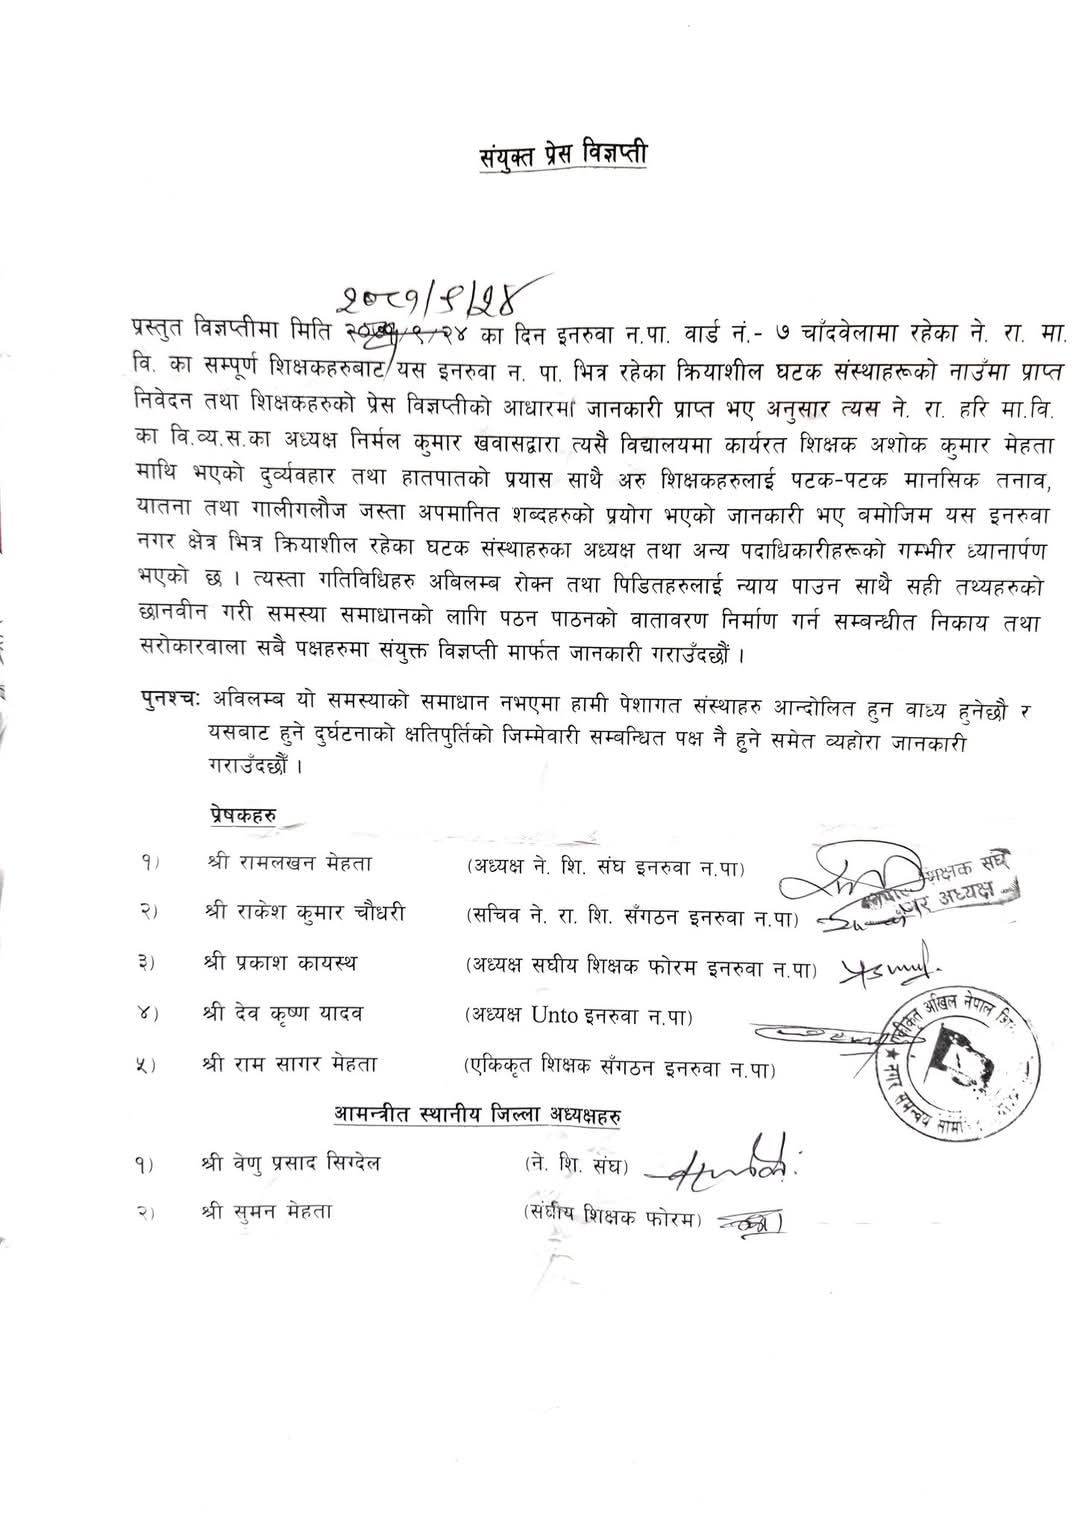 संयुक्त प्रेस विज्ञप्ती
२०८१/९/२४
प्रस्तुत विज्ञप्तीमा मिति ९/२४ का दिन इनरुवा न.पा. वार्ड नं.- ७ चाँदवेलामा रहेका ने. रा. मा.
वि. का सम्पूर्ण शिक्षकहरुबाट यस इनरुवा न. पा. भित्र रहेका क्रियाशील घटक संस्थाहरूको नाउँमा प्राप्त
निवेदन तथा शिक्षकहरुको प्रेस विज्ञप्तीको आधारमा जानकारी प्राप्त भए अनुसार त्यस ने. रा. हरि मा.वि.
का वि.व्य.स.का अध्यक्ष निर्मल कुमार खवासद्वारा त्यसै विद्यालयमा कार्यरत शिक्षक अशोक कुमार मेहता
माथि भएको दुर्व्यवहार तथा हातपातको प्रयास साथै अरु शिक्षकहरुलाई पटक-पटक मानसिक तनाव,
यातना तथा गालीगलौज जस्ता अपमानित शब्दहरुको प्रयोग भएको जानकारी भए बमोजिम यस इनरुवा
नगर क्षेत्र भित्र क्रियाशील रहेका घटक संस्थाहरुका अध्यक्ष तथा अन्य पदाधिकारीहरूको गम्भीर ध्यानार्पण
भएको छ । त्यस्ता गतिविधिहरु अबिलम्ब रोक्न तथा पिडितहरुलाई न्याय पाउन साथै सही तथ्यहरुको
छानवीन गरी समस्या समाधानको लागि पठन पाठनको वातावरण निर्माण गर्न सम्बन्धीत निकाय तथा
सरोकारवाला सबै पक्षहरुमा संयुक्त विज्ञप्ती मार्फत जानकारी गराउँदछौं ।
पुनश्च: अविलम्ब यो समस्याको समाधान नभएमा हामी पेशागत संस्थाहरु आन्दोलित हुन वाध्य हुनेछौ र
यसबाट हुने दुर्घटनाको क्षतिपुर्तिको जिम्मेवारी सम्बन्धित पक्ष नै हुने समेत व्यहोरा जानकारी
गराउँदछौं ।
प्रेषकहरु
१) श्री रामलखन मेहता (अध्यक्ष ने. शि. संघ इनरुवा न.पा)
शिक्षक संघ
नगर अध्यक्ष
२) श्री राकेश कुमार चौधरी (सचिव ने. रा. शि. सँगठन इनरुवा न.पा)
३) श्री प्रकाश कायस्थ (अध्यक्ष सघीय शिक्षक फोरम इनरुवा न.पा)
४) श्री देव कृष्ण यादव (अध्यक्ष Unto इनरुवा न.पा)
एकीकृत अखिल नेपाल
नगर समन्वय
५) श्री राम सागर मेहता (एकिकृत शिक्षक सँगठन इनरुवा न.पा)
आमन्त्रीत स्थानीय जिल्ला अध्यक्षहरु
१) श्री वेणु प्रसाद सिग्देल (ने. शि. संघ)
२) श्री सुमन मेहता (संघीय शिक्षक फोरम)